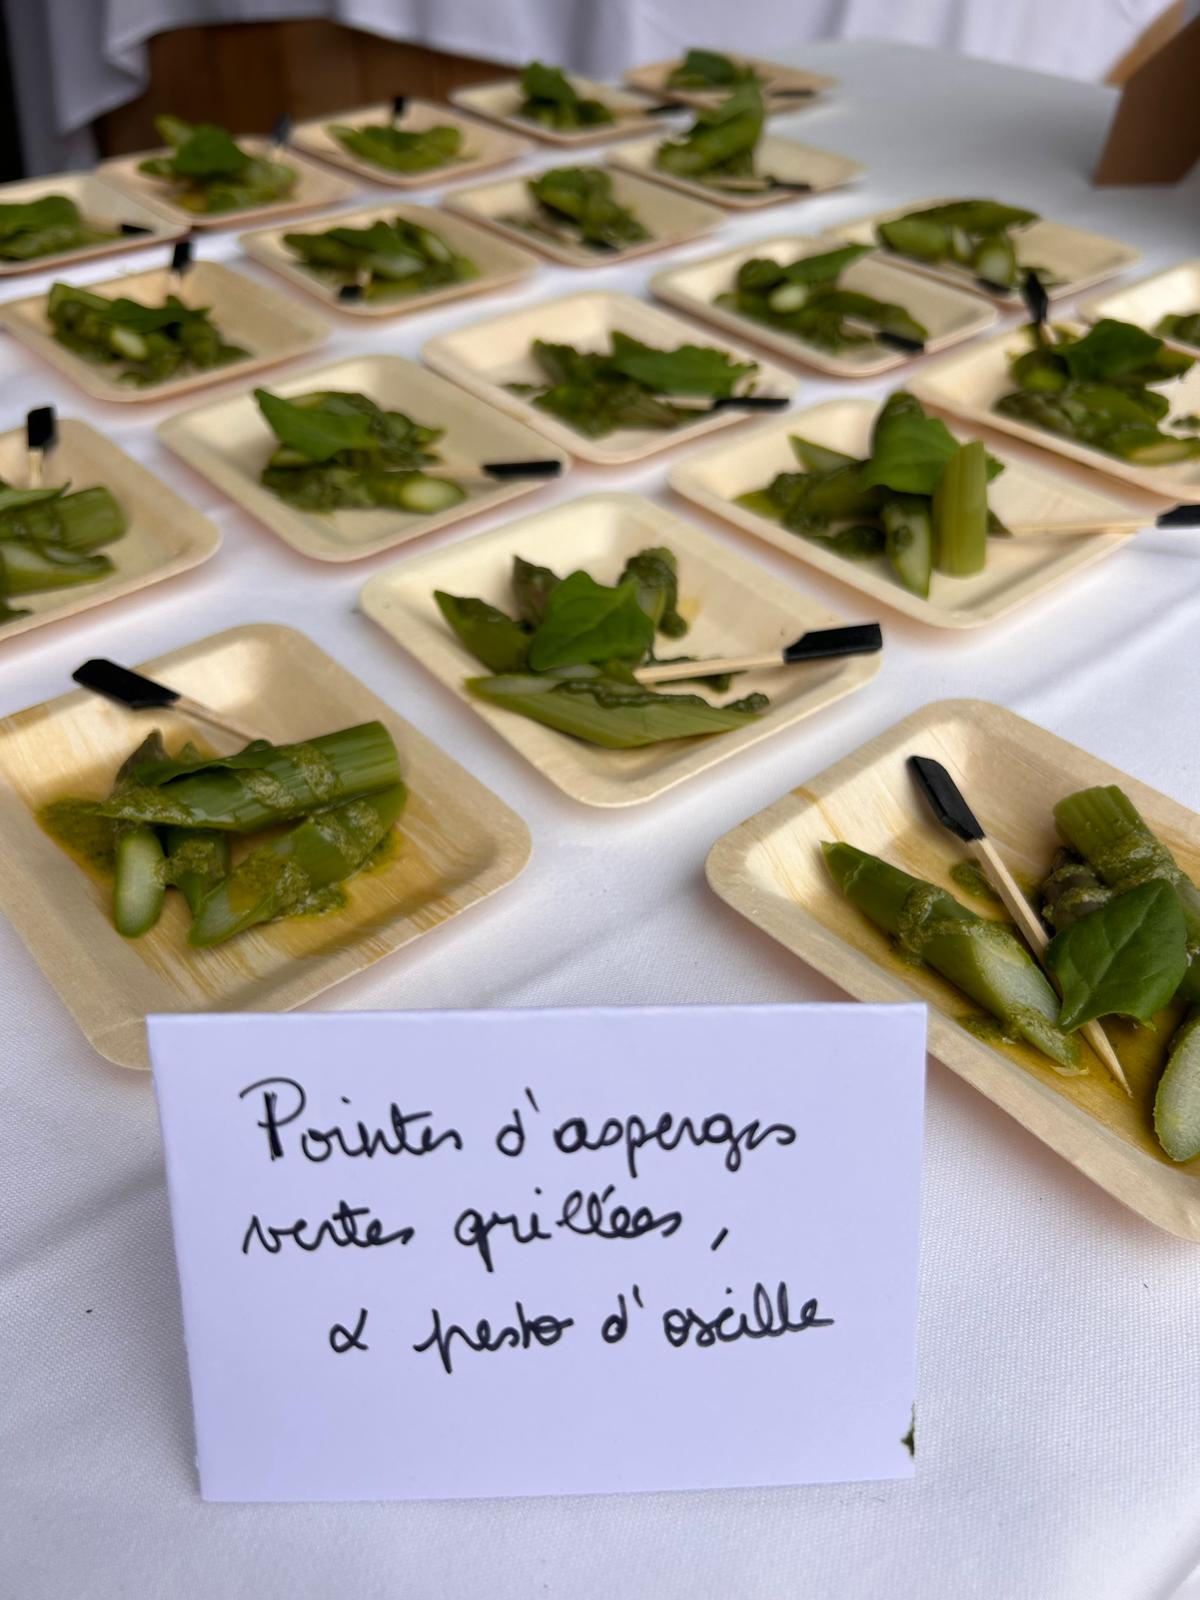 Pointes d'asperges
vertes grillées,
& pesto d'oseille